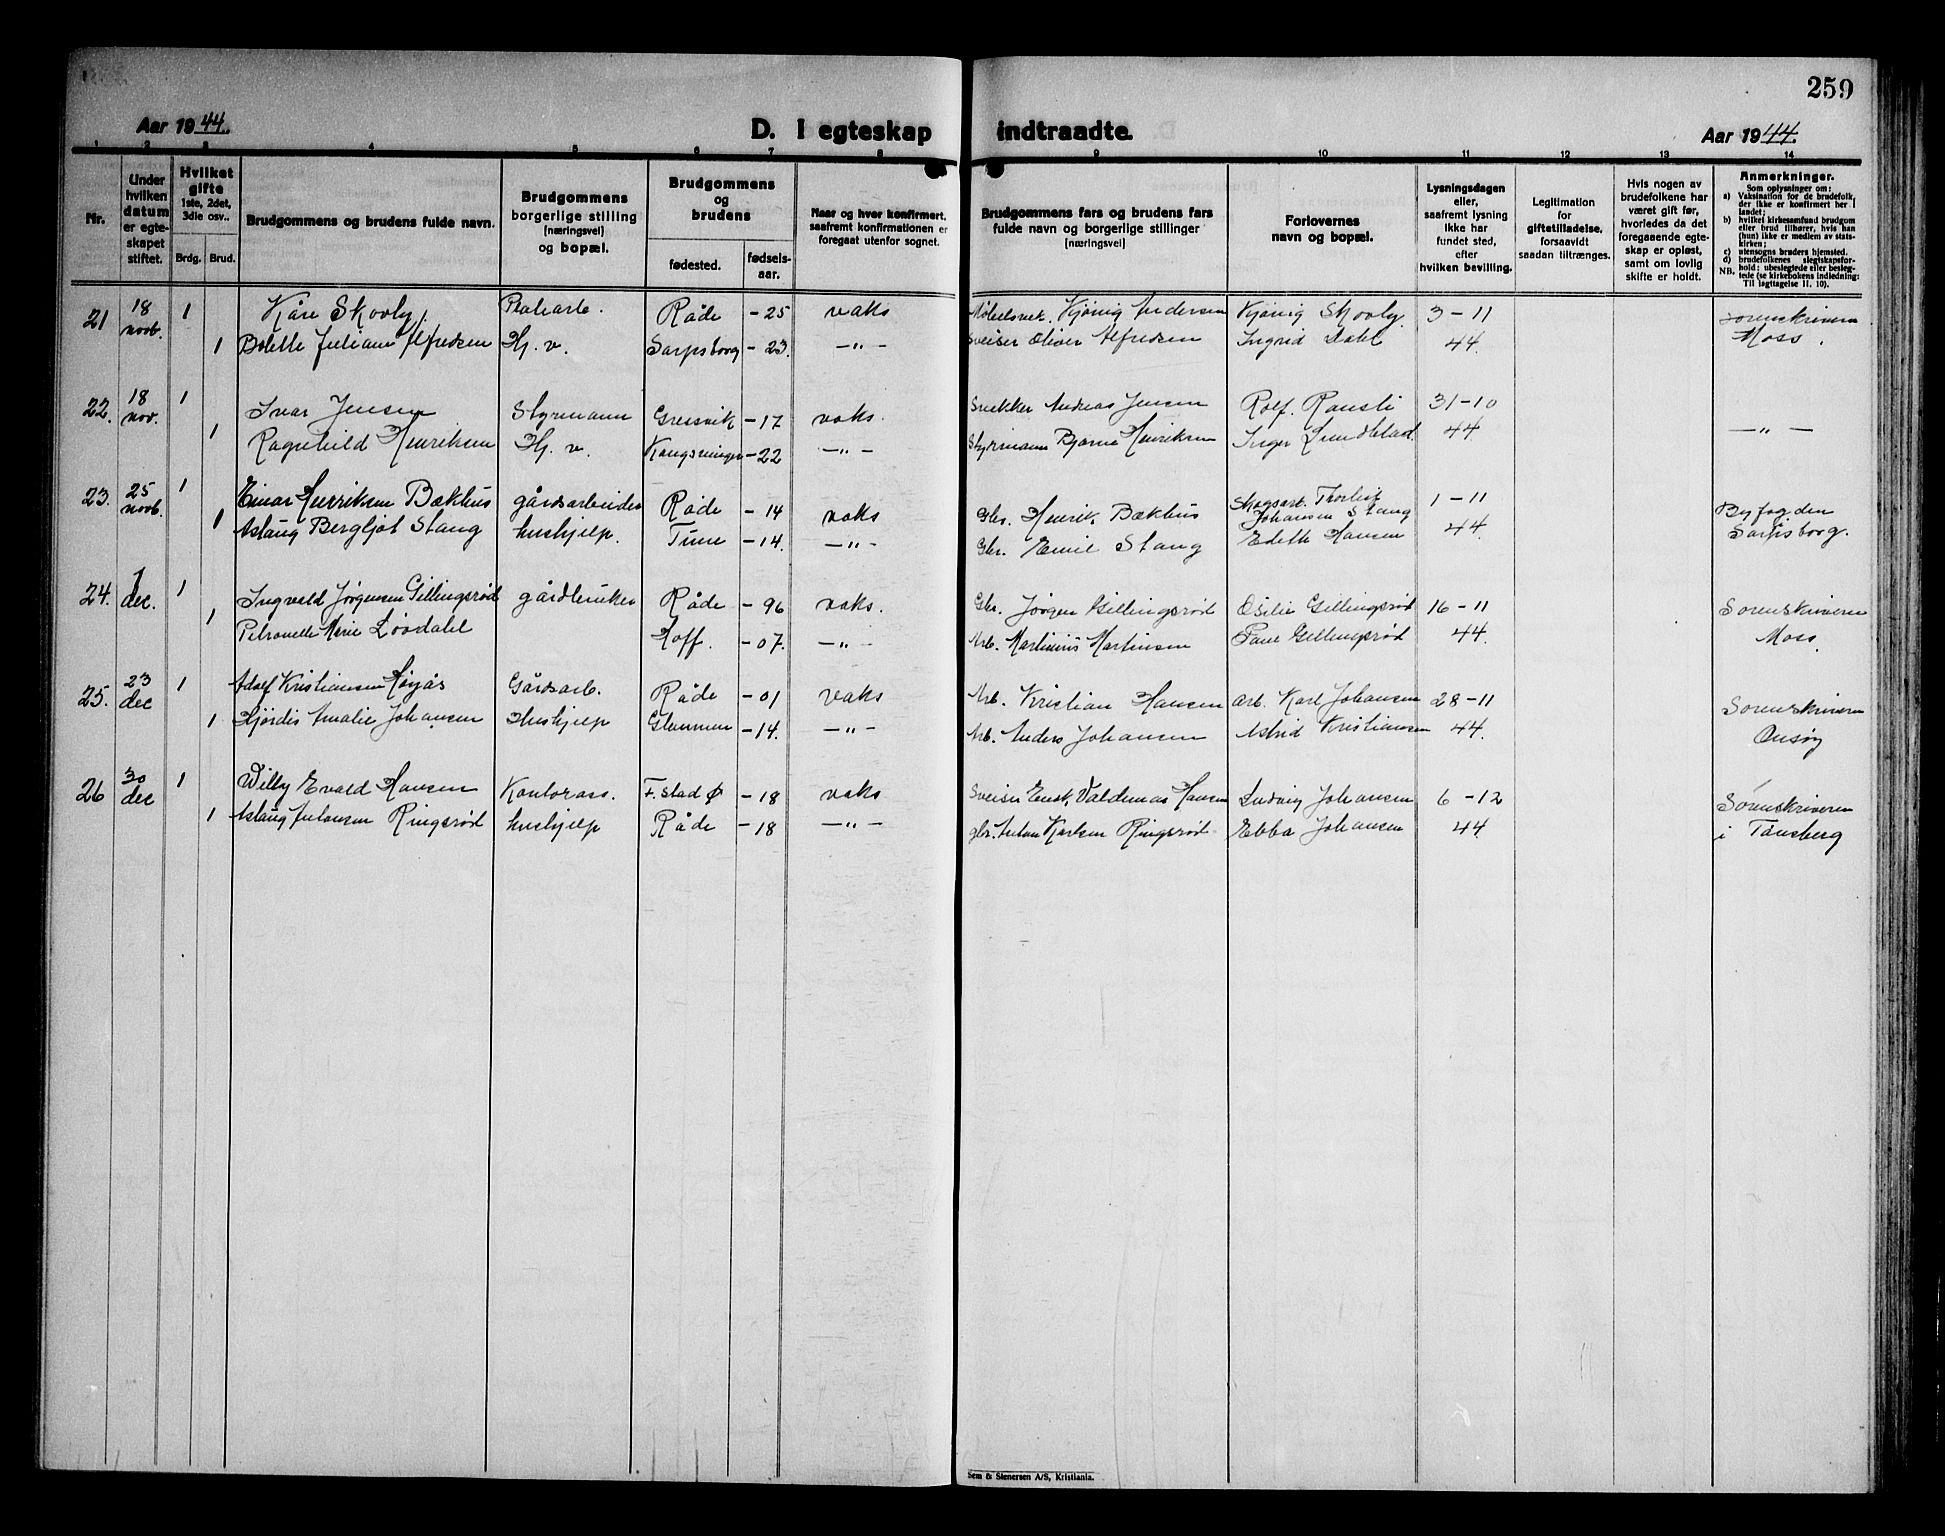 259
Aar 1944.
D. I egteskap indtraadte.
Aar 1944.
1 2 3 4 5 6 7 8 9 10 11 12 13 14
Nr.
Under hvilken datum er egte-skapet stiftet.
Hvilket gifte 1ste, 2det, 3die osv..
Brdg. Brud.
Brudgommens og brudens fulde navn.
Brudgommens borgerlige stilling (næringsvei) og bopæl.
Brudgommens og brudens
fødested. fødsels-aar.
Naar og hver konfirmert, saafremt konfirmationen er foregaat utenfor sognet.
Brudgommens fars og brudens fars fulde navn og borgerlige stillinger (næringsvei)
Forlovernes navn og bopæl.
Lysningsdagen eller, saafremt lysning ikke har fundet sted, efter hvilken bevilling.
Legitimation for giftetilladelse. forsaavidt saadan tiltrænges.
Hvis nogen av brudefolkene har været gift før, hvorledes da det foregaaende egte-skap er opløst, samt om lovlig skifte er holdt.
Anmerkninger.
Som oplysninger om:
a) Vaksination for de brudefolk, der ikke er konfirmert her i landet;
b) hvilket kirkesamfund brudgom eller brud tilhører, hvis han (hun) ikke er medlem av stats-kirken;
c) utensogns bruders hjemsted.
d) brudefolkenes slegtskapsfor-hold: ubeslegtede eller besleg-tede (se kirkebokens indledning: NB. Til Iagttagelse II. 10).
21 18 novb. 1 Kåre Skovly, Råde - 25 vaks Kjönig Andersen Kjönig Skovly 3 - 11 Sorenskriveren
1 Bolette Juliane Alfredsen Hj. v. Sarpsborg - 23. -"- Sveiser Oliver Alfredsen Ingrid Dahl 44. Moss.
22. 18 nov. 1 Ivar Jensen Styrmann Gressvik - 17 vaks. Snekker Andreas Jensen Rolf 31 - 10
1 Ragnhild Henriksen Hj. v. Kongsvinger - 22 -"- Styrmann Bjarne Henriksen Inger Lundblad. 44 -"-
23. 25 novb. 1 Einar Henriksen Bækhus gårdsarbeider Råde - 14 vaks Gbr. Henrik Bækhus Skogsarb. Thorleif Johansen Stang 1 - 11 Byfogden
1 Aslaug Bergljot Stang hushjelp. Tune - 14. -"- Gbr. Emil Stang Edith Hansen 44. Sarpsborg.
24. 1 dec. 1 Ingvald Jørgensen Gillingsrød gårdbruker Råde - 96 vaks. Gbr. Jørgen Gillingsrød Gillingsrød 16 - 11 Sorenskriveren
1 Petronelle Marie Løvdahl Hoff. - 07. -"- Arb. Martinius Martinsen Gillingsrød 44. Moss.
25. 23 dec 1 Adolf Kristiansen Høyås Gårdsarb. Råde - 01 vaks Arb. Kristian Hansen Arb. Karl Johansen 28 - 11 Sorenskriveren
1 Hjördis Amalie Johansen Hushjelp Glemmen - 14. -"- Arb. Anders Johansen Astrid Kristiansen 44. Onsøy
26 30 dec 1 Willy Evald Hansen Kontorass. F.stad Ø - 18 vaks Sveiser Valdemar Hansen Ludvig Johansen 6 - 12 Sørenskriveren
1 Aslaug Johansen Ringsrød hushjelp Råde - 18 -"- gbr. Anton Karlsen Ringsrød Ebba Johansen 44. i Tønsberg
Sem & Stenersen A/S, Kristiania.